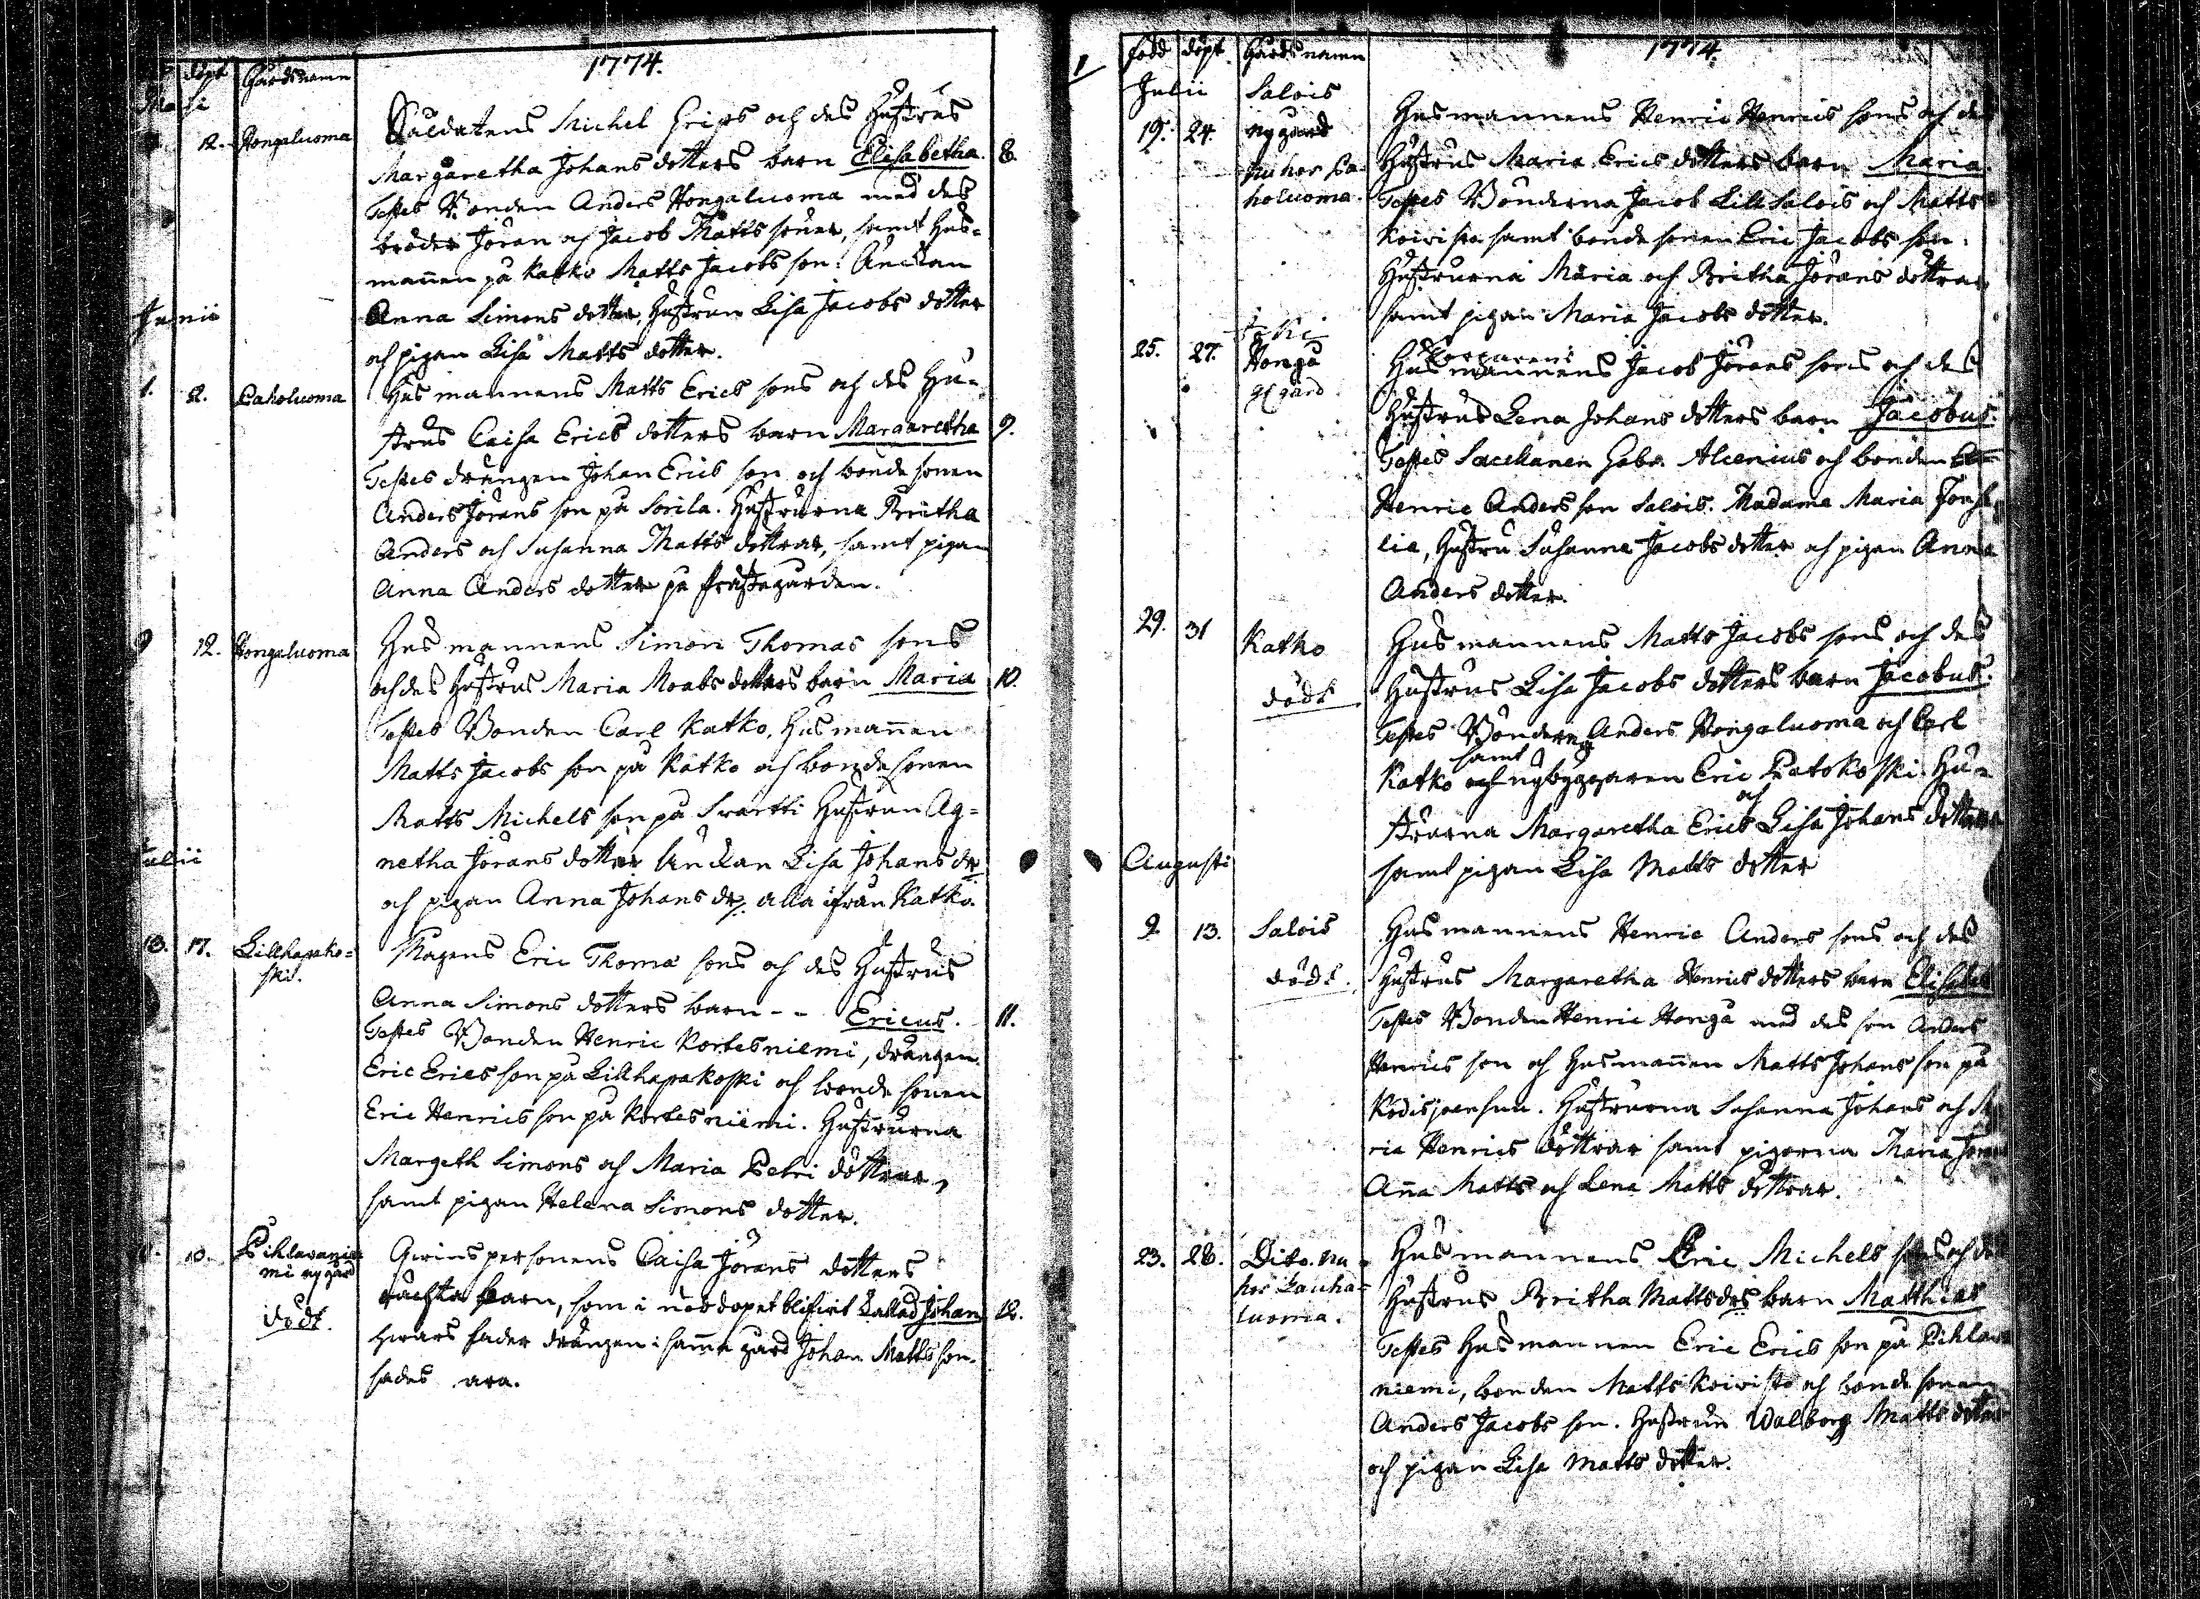 1774.
döpt Gårdsnamn
Maji
12. Hongaluoma Soldatens Michel Grips och des Hustrus
Margaretha Johans dotters barn Elisabetha. 8.
Testes Bonden Anders Hongaluoma med des
bröder Jöran och Jacob Matts söner, samt Hus-
mannen på Katko Matts Jacobs son. Änckan
Anna Simons dotter, Hustrun Lisa Jacobs dotter
och pigan Lisa Matts dotter.
Junii
1. 2. Paholuoma Hus mannens Matts Erics sons och des Hu-
strus Caisa Erics dotters barn Margaretha 9.
Testes drängen Johan Erics son och bonde sonen
Anders Jörans son på Sorila. Hustrurna Britha
Anders och Susanna Matts döttrar, samt pigan
Anna Anders dotter på Prästegården.
9 12. Hongaluoma Hus mannens Simon Thomas sons
och des Hustrus Maria Moabs dotters barn Maria 10.
Testes Bonden Carl Katko, Husmannen
Matts Jacobs son på Katko och bonde sonen
Matts Michels son på Svartti Hustrun Ag-
netha Jörans dotter Änckan Lisa Johans dr
och pigan Anna Johans dr. alla ifrån Katko.
Julii
13. 17. Lillhapako-
ski. Magens Eric Thomæ sons och des Hustrus
Anna Simons dotters barn - - Ericus. 11.
Testes Bonden Henric Kortesniemi, drängen
Eric Erics son på Lillhapakoski och bonde sonen
Eric Henrics son på Kortesniemi. Hustrurna
Margeth Simons och Maria Petri döttrar,
samt pigan Helena Simons dotter.
10. Pihlavanie
mi nygård
död. Qvins personens Caisa Jörans dotters
oächta barn, som i nöddopet blifvit kallad Johan 12.
hvars fader drängen i samma gård Johan Matts son
sades vara.
1774.
född döpt. Gårds namn
Julii Salois
19. 24. nygård
nu hos Pa-
holuoma. Husmannens Henric Henrics sons och des
Hustrus Maria Erics dotters barn Maria.
Testes Bönderna Jacob Lill Salois och Matts
Koivisto samt bonde sonen Eric Jacobs son.
Hustrurna Maria och Britha Jörans döttrar
samt pigan Maria Jacobs dotter.
25. 27. Honga
gl gård Torparens
Husmannens Jacob Jörans sons och des
Hustrus Lena Johans dotters barn Jacobus.
Testes Sacellanen Gabr. Alcenius och bonden
Henric Anders son Salois. Madama Maria
lia, Hustru Susanna Jacobs dotter och pigan Anna
Anders dotter.
29. 31 Katko
död Husmannens Matts Jacobs sons och des
Hustrus Lisa Jacobs dotters barn Jacobus.
Testes Bönderna Anders Hongaluoma och Carl
samt
Katko och nybyggaren Eric Patokoski. Hu-
strurna Margaretha Erics och Lisa Johans döttrar
samt pigan Lisa Matts dotter
Augusti
9 13. Salois
död. Husmannens Henric Anders sons och des
Hustrus Margaretha Henrics dotters barn Elisabet
Testes Bonden Henric Honga med des son Anders
Henrics son och Husmannen Matts Johans son på
Kodisjoensuu. Hustrurna Susanna Johans och Ma
ria Henrics döttrar samt pigorna Maria
Anna Matts och Lena Matts döttrar.
23. 28. Dito. nu
hos Lauha-
luoma. Husmannens Eric Michels sons och des
Hustrus Britha Mattsdrs barn Matthias
Testes Husmannen Eric Erics son på Pihlava
niemi, bonden Matts Koivisto och bonde sonen
Anders Jacobs son. Hustrun Walborg Matts dotter
och pigan Lisa Matts dotter.